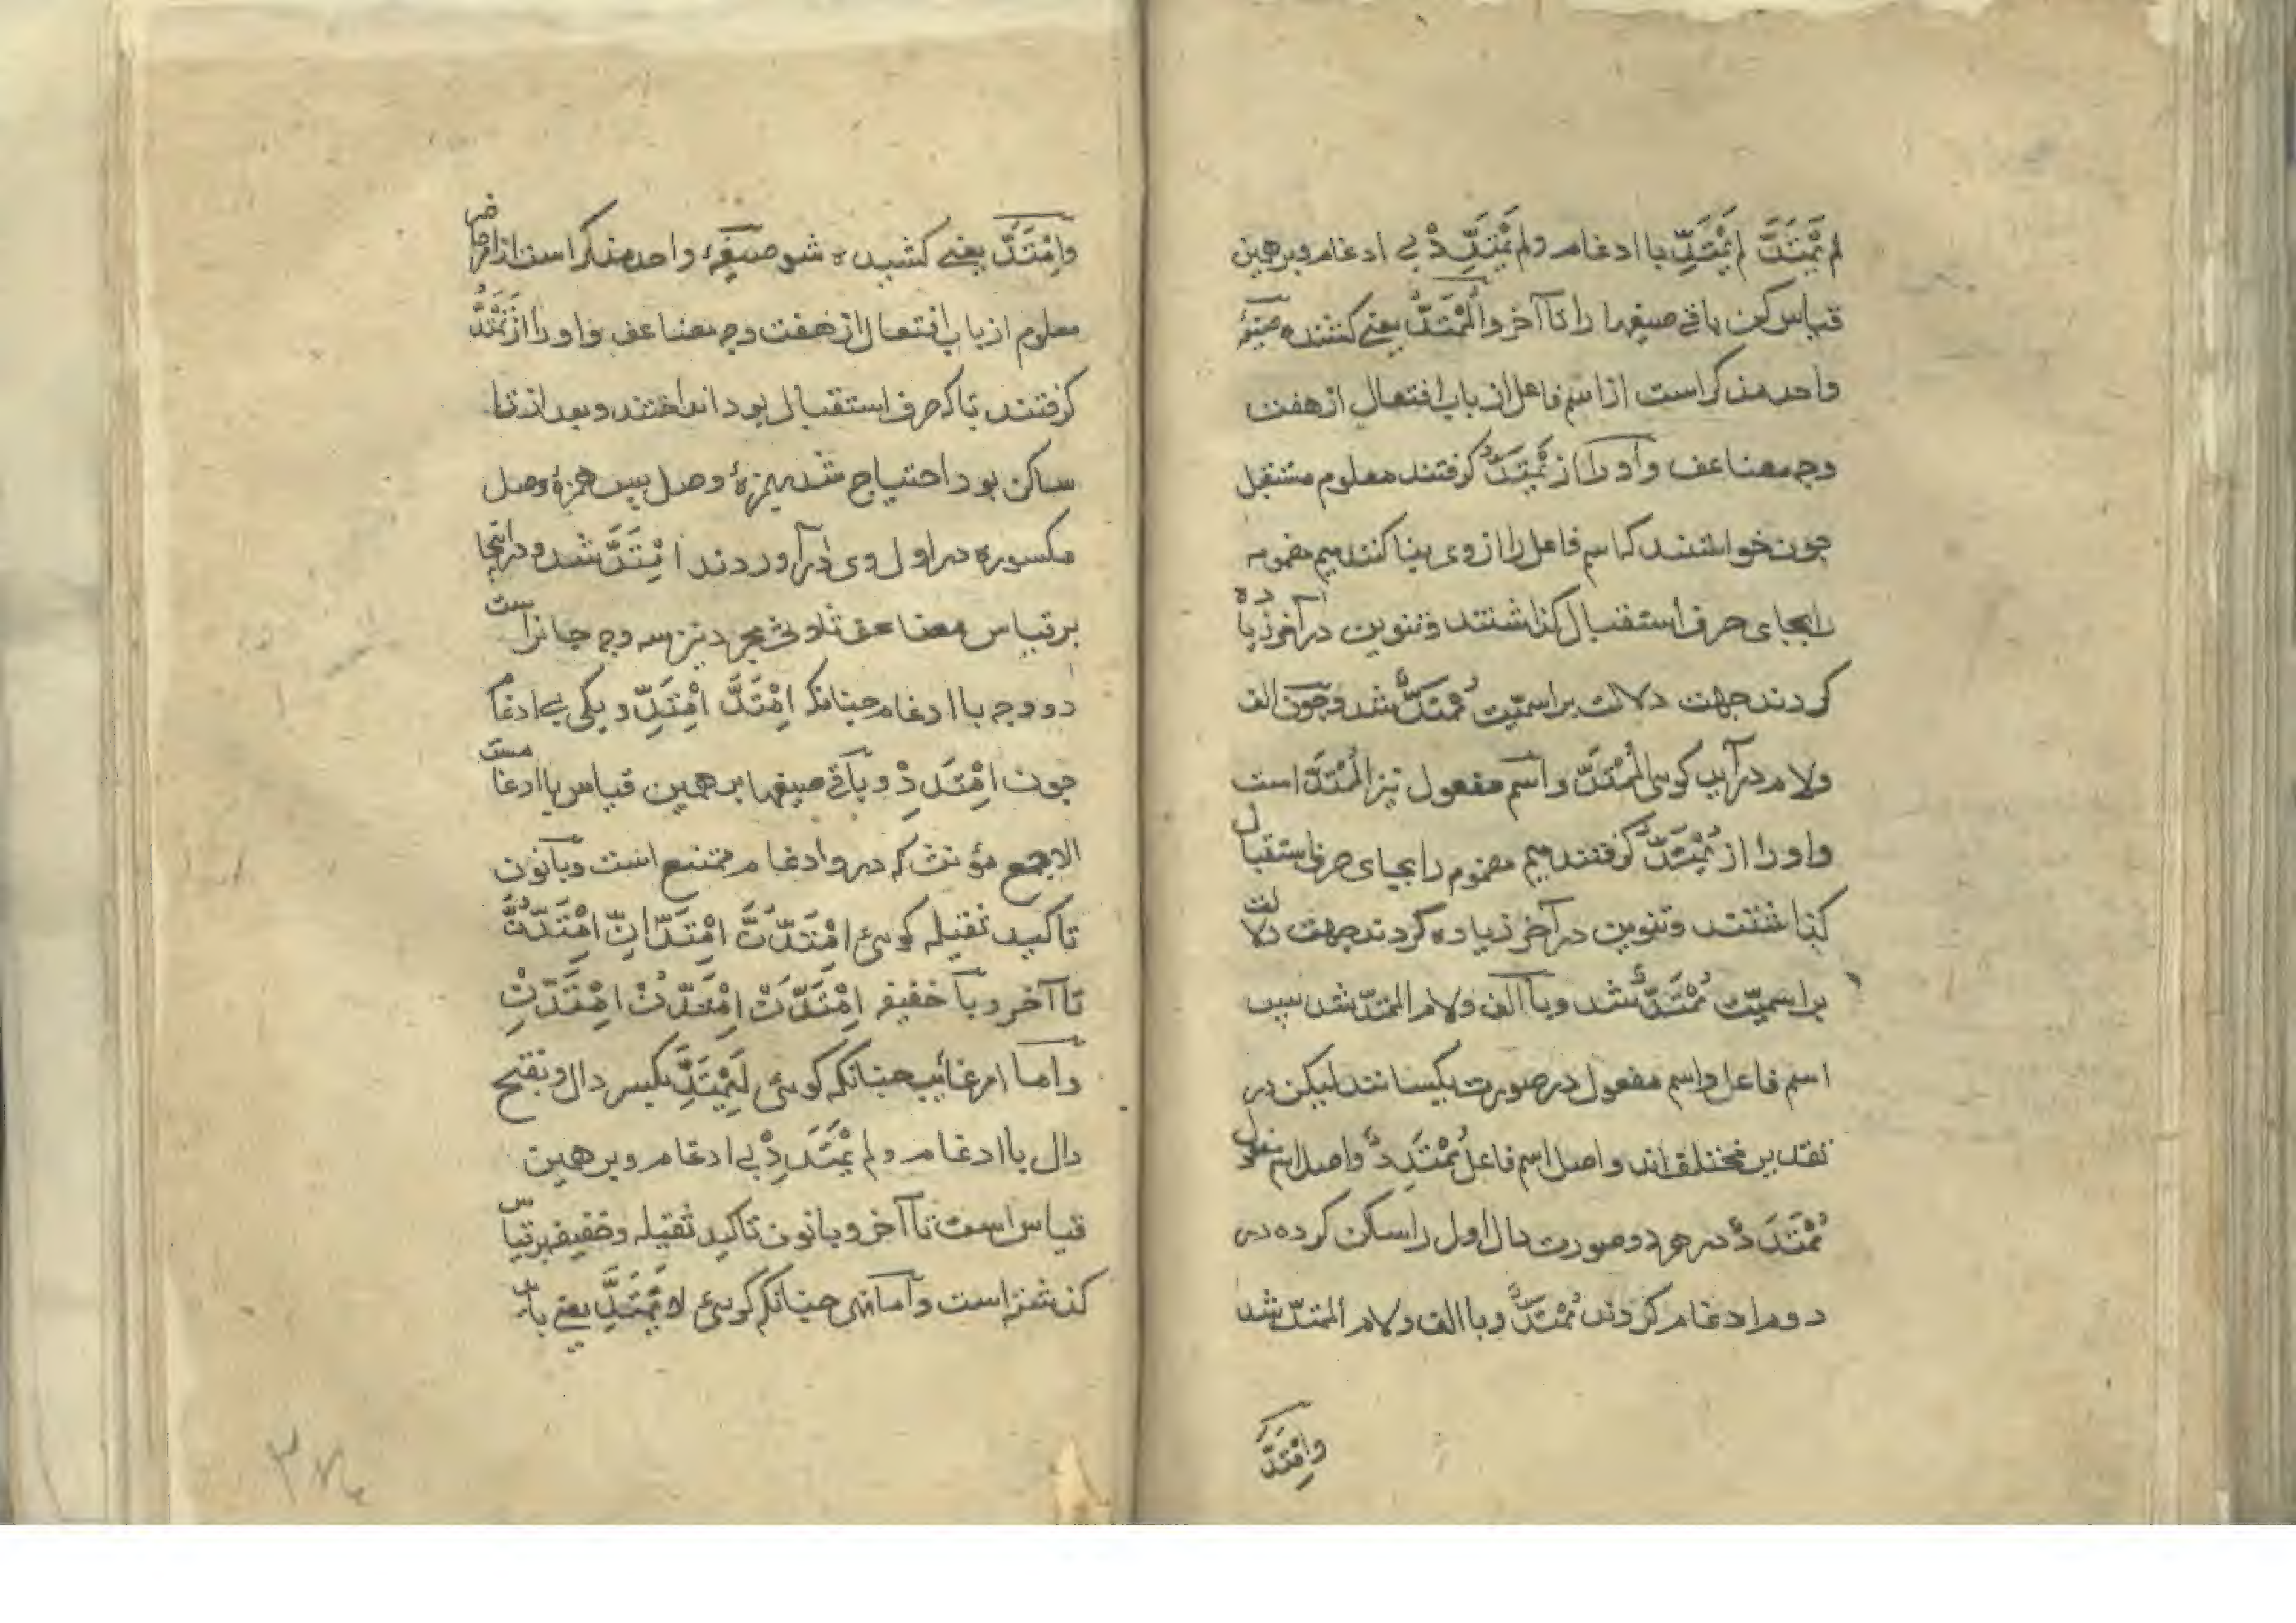 لم یَمْتَدَّ لم یَمْتَدِّ با ادغام ولم یَمْتَدِدْ بی ادغام و برهمین
قیاس کن باقی صیغها را تا آخر و اَلْمُمْتَدُّ یعنی کشنده صیغهٔ
واحد مذکر است از اسم فاعل از باب افتعال از هفت
وجه مضاعف و او را از یَمْتَدُّ کرفتند معلوم مستقبل
جون خواستند که اسم فاعل را از وی بنا کنند میم مضمومه
را بجای حرف استقبال کذاشتند و تنوین در آخر زیاده
کردند جهت دلالت بر اسمیّت مُمْتَدٌّ شد و جون الف
ولام در آید کوئی اَلْمُمْتَدُّ و اسم مفعول نیز اَلْمُمْتَدُّ است
و او را از یُمْتَدُّ کرفتند میم مضموم را بجای حرف استقبال
کذاشتند و تنوین در آخر زیاده کردند جهت دلالت
بر اسمیّت مُمْتَدٌّ شد و با الف ولام الممتدّ شد سبب
اسم فاعل و اسم مفعول در صورت یکسانند لیکن در
تقدیر مختلف اند و اصل اسم فاعل مُمْتَدِدٌ و اصل اسم مفعول
مُمْتَدَدٌ در هر دو صورت دال اول را ساکن کرده در
دوم ادغام کردند مُمْتَدٌّ و با الف ولام الممتدّ شد
وامْتَدَّ
وامْتَدَّ یعنی کشیده شو صیغهٔ واحد مذکر است از امر حاضر
معلوم از باب افتعال از هفت وجه مضاعف و او را از تَمْتَدُّ
کرفتند تا که حرف استقبال بود انداختند و بعد از تا
ساکن بود احتیاج شد بهمزهٔ وصل پس همزهٔ وصل
مکسوره در اول وی در آوردند اِمْتَدَّ شد و در اینجا
بر قیاس مضاعف ثلاثی مجرد نیز سه وجه جائز است
دو وجه با ادغام جنانکه اِمْتَدَّ اِمْتَدِّ و یکی بی ادغام
جون اِمْتَدِدْ و باقی صیغها بر همین قیاس با ادغام است
الا جمع مؤنث که در و ادغام ممتنع است و با نون
تاکید ثقیله کوئی اِمْتَدَّنَّ اِمْتَدَّانِّ اِمْتَدُّنَّ
تا آخر و با خفیفه اِمْتَدَّنْ اِمْتَدُّنْ اِمْتَدِّنْ
و اما امر غائب جنانکه کوئی لِیَمْتَدَّ بکسر دال و بفتح
دال با ادغام و لم یَمْتَدِدْ بی ادغام و بر همین
قیاس است تا آخر و با نون تاکید ثقیله و خفیفه بر قیاس
کذشته است و اما نهی جنانکه کوئی لا یَمْتَدَّ یعنی